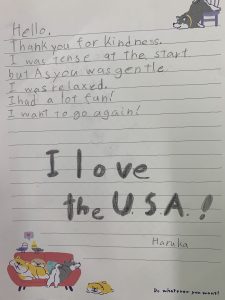 Hello.
Thank you for Kindness.
I was tense at the start
but As you was gentle
I was relaxed.
I had a lot fun!
I want to go again!
I love
the U.S.A.!
Haruka
Do whatever you want!